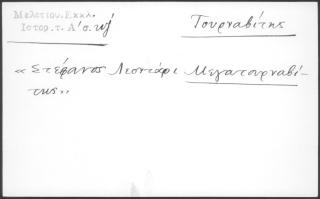 Μελετίου.Εκκλ.
Ιστορ.τ.Α'σ.
Τουρναβίτης
«Στέφανος Λεοντάρι Μεγατουρναβί-
της»